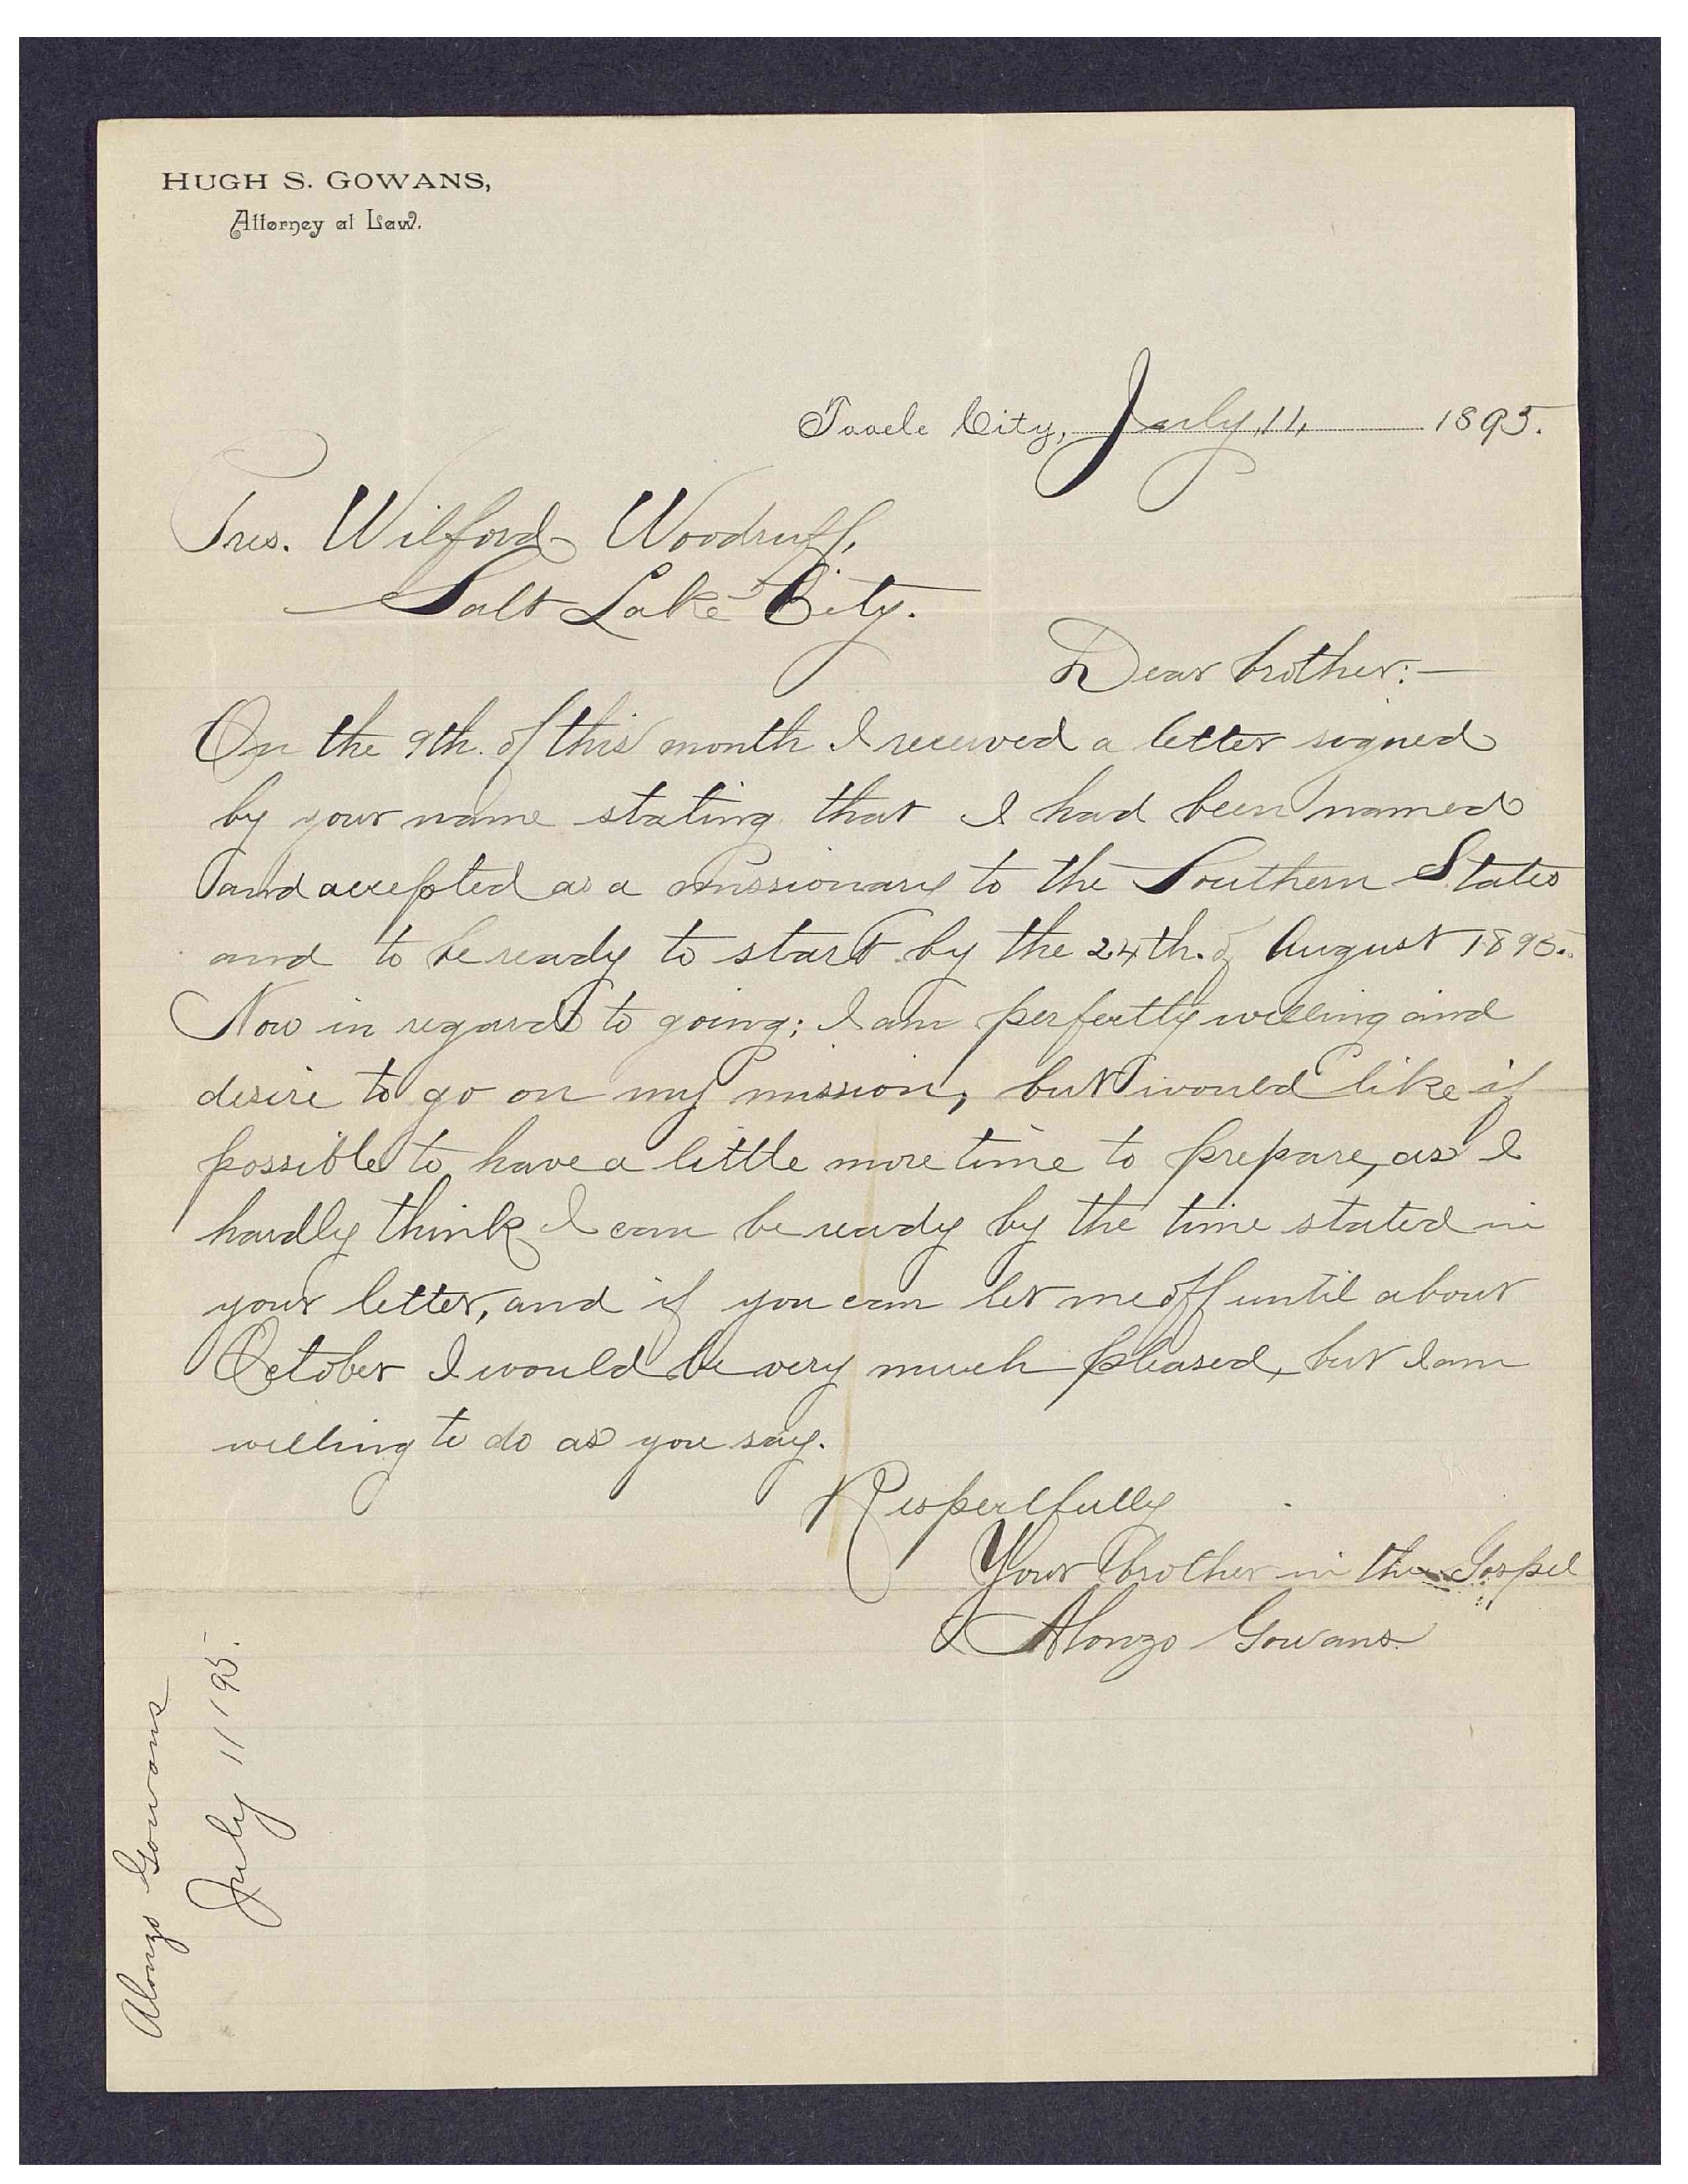 HUGH S. GOWANS,
Attorney at Law.
Tooele City, July, 11, 1895.
Pres. Wilford Woodruff,
Salt Lake City.
Dear brother:—
On the 9th. of this month I received a letter signed
by your name stating that I had been named
and accepted as a missionary to the Southern States
and to be ready to start by the 24th. of August 1895.
Now in regard to going; I am perfectly willing and
desire to go on my mission, but would like if
possible to have a little more time to prepare, as I
hardly think I can be ready by the time stated in
your letter, and if you can let me off until about
October I would be very much pleased, but I am
willing to do as you say.
Respectfully
Your brother in the Gospel
Alonzo Gowans.
Alonzo Gowans
July 11 /95.